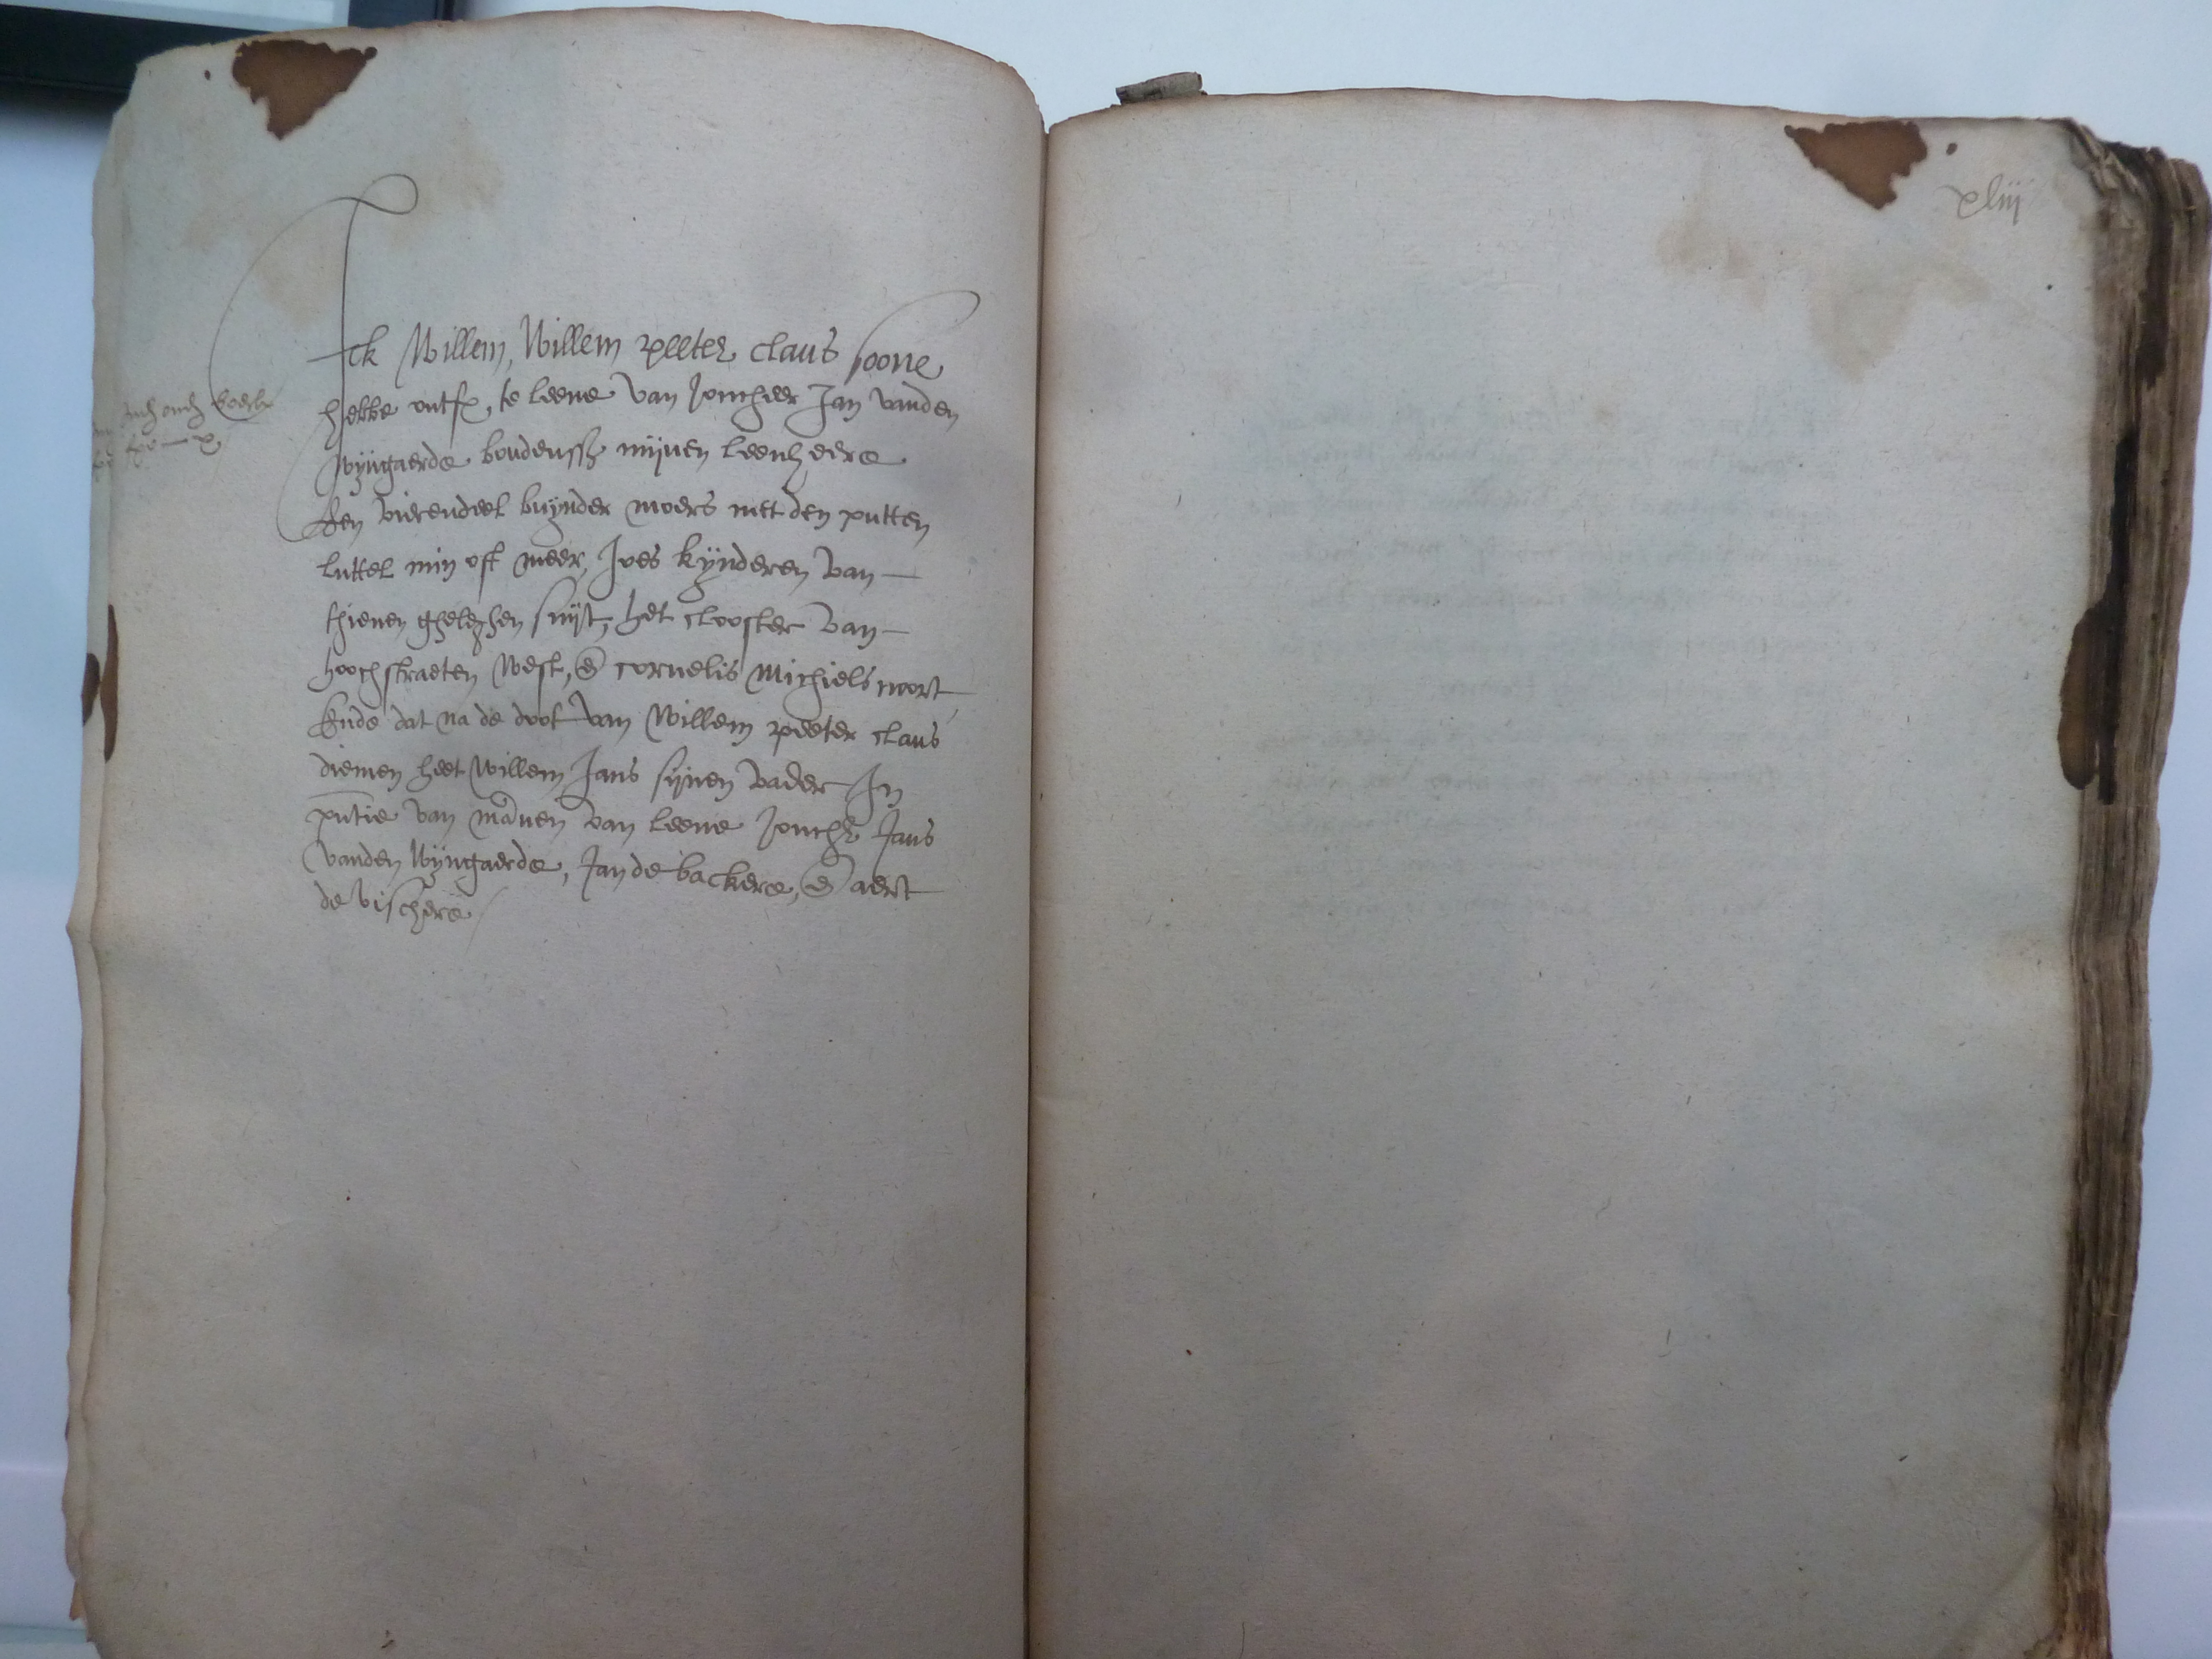 xliij
Ick Willem, Willem peeter claus soone
hebbe ontf, te leene van Joncheer Jan vanden
wijngaerde boudenss mijnen leenheere
Een vierendeel buynder moers met den putten
luttel min oft meer, Joes kynderen van —
thienen gheleghen suyt, het clooster van —
hoochstraeten west, en cornelis michiels noort
Ende dat na de doot van willem peeter claus
diemen heet willem Jans sijnen vader In
pntie van mannen van leene Jonchr Jans
vanden wijngaerde, Jan de backere, en aert
de visschere